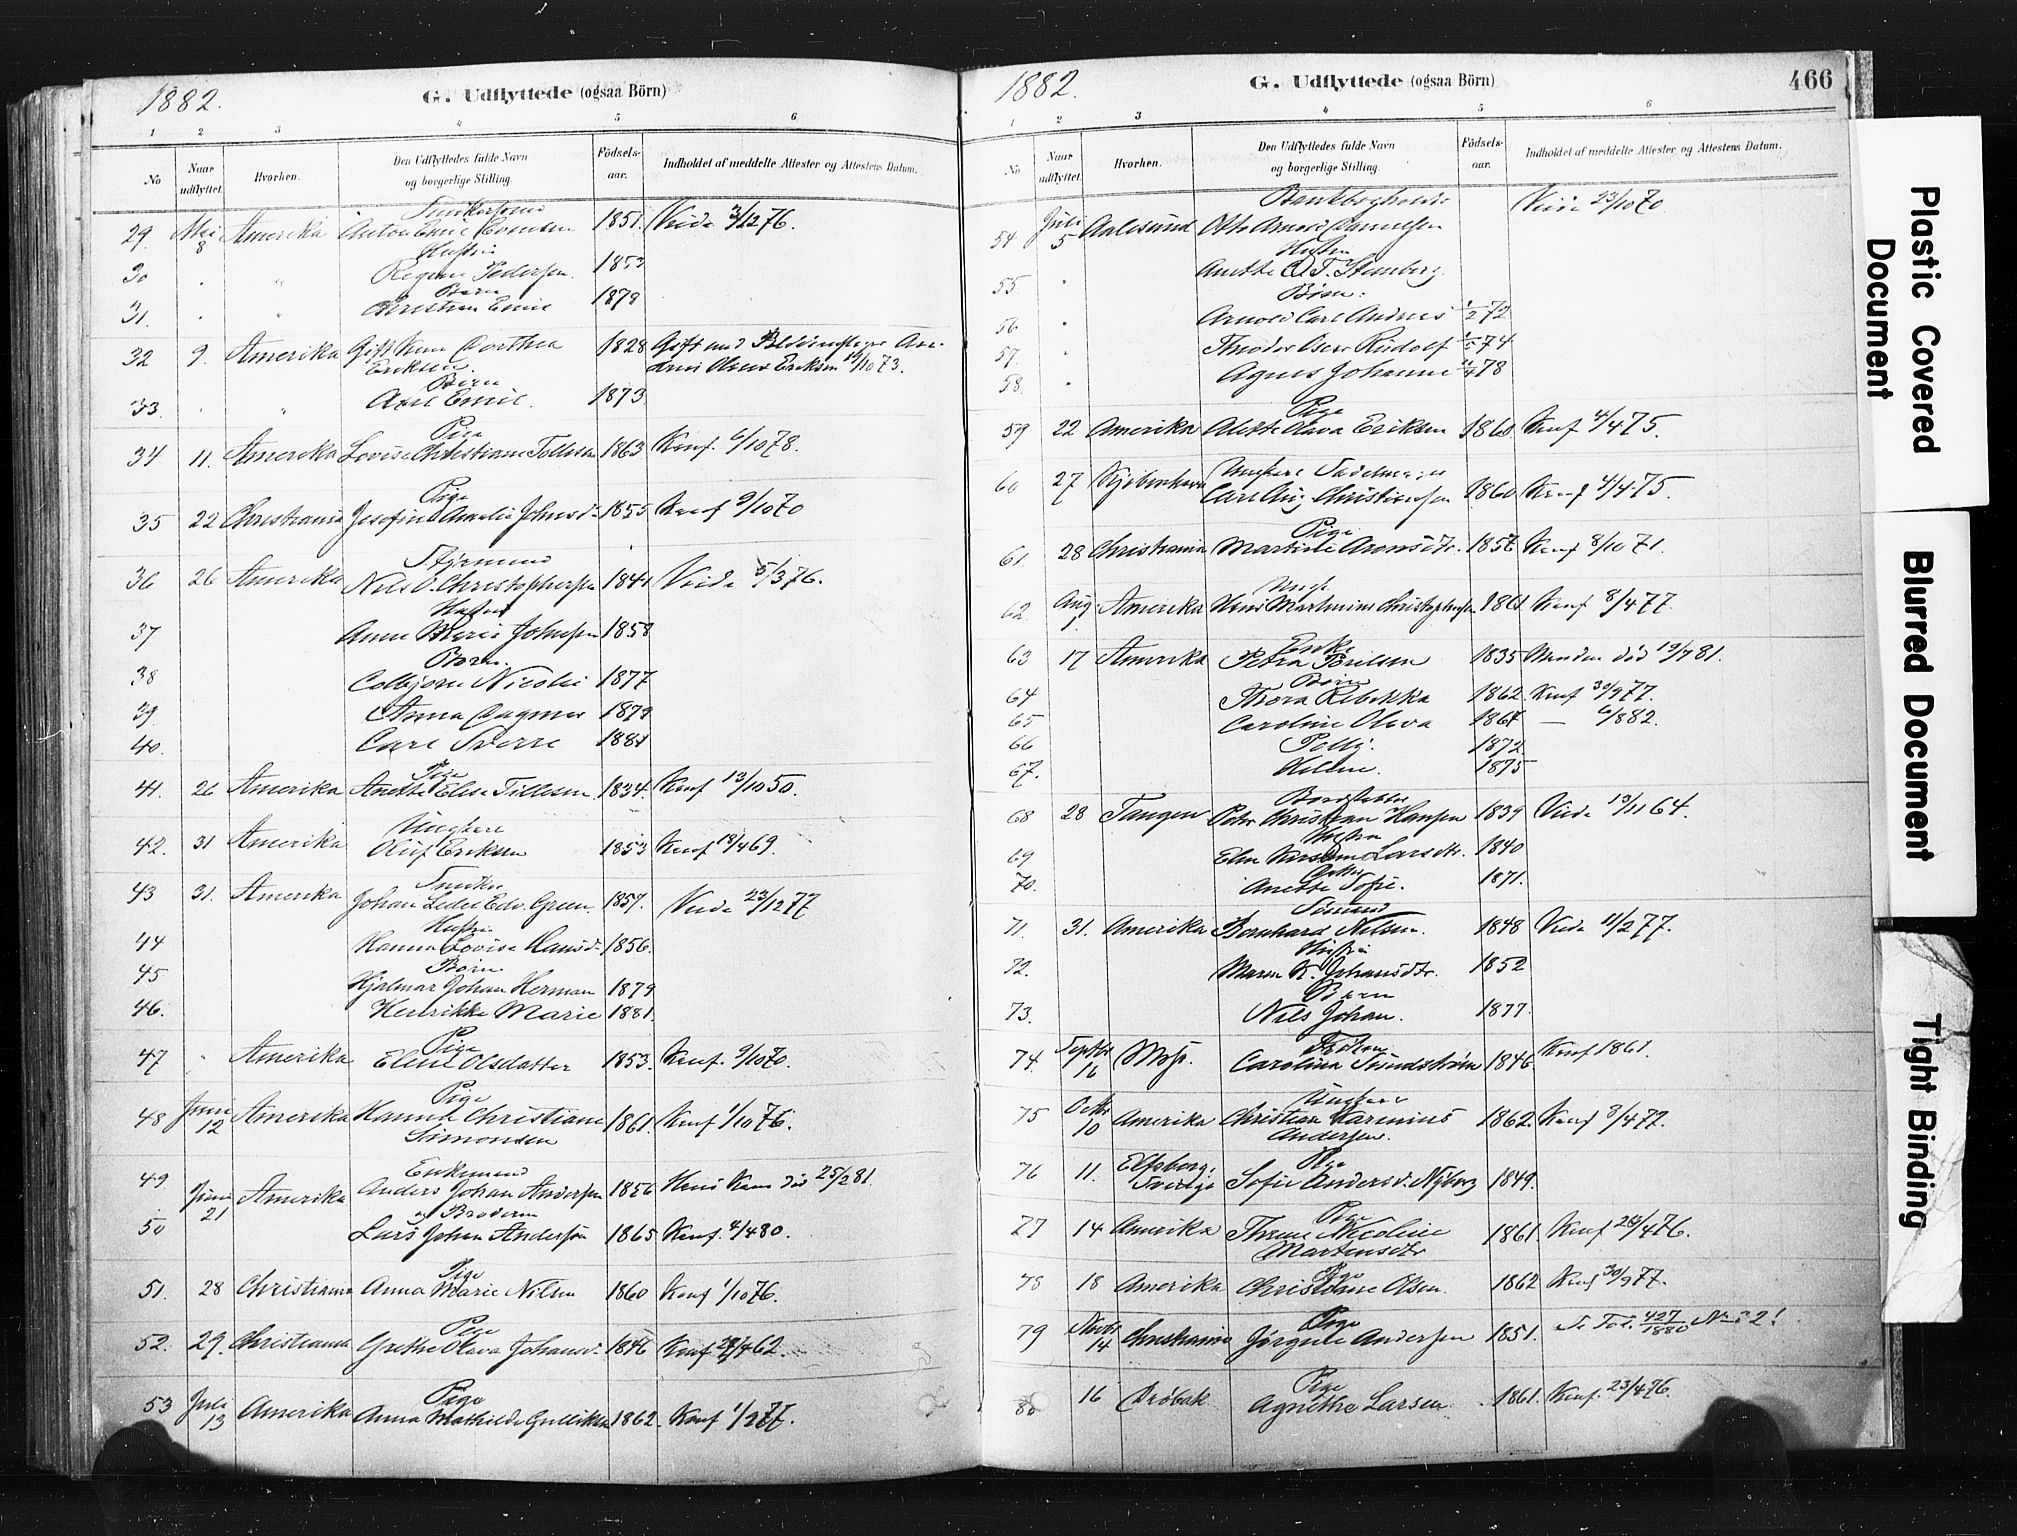 1882.
G. Udflyttede (ogsaa Börn)
1 2 3 4 5 6
No
Naar udflyttet.
Hvorhen.
Den Udflyttedes fulde Navn og borgerlige Stilling.
Fødsels-aar.
Indholdet af meddelte Attester og Attestens Datum.
29. Mai 8 Amerika Anton Emil 1851. Viede 76.
Hustru
30 Regine Pedersen. 1853
Børn
31. Christian Emil 1878
32 9. Amerika Gift Dorthea Eriksen. 1828 Gift med Eriksen 73.
Børn
33. Axel Emil. 1873
Pige
34 11. Amerika Lovise Christiane 1863 Konf. 6/10 78.
Pige
35 22 Christiania Josefine Amalie 1855 Konf 9/10 70
Styrmand
36 26 Amerika Nils O. Christophersen 1841 Viede 5/3 76.
Hustru
37 Anne Marie Johnsen 1858
Børn.
38 Colbjørn Nicolai 1877
39 Anna Dagmar 1879
40. Carl Sverre 1881
Pige
41. 26 Amerika Anette Elise Tillesen. 1834. Konf 13/10 50.
Ungkarl
42. 31 Amerika Oluf Eriksen 1853 Konf 4 69.
43 31. Amerika Johan Edv. Green. 1857. Viede 23/12 77
Hustru
44 Hanna Lovise Hansd. 1856.
Børn
45 Hjalmar Johan Herman 1879
46. Henrikke Marie 1881.
Pige
47 " Amerika Eline Olsdatter 1853. Konf. 9/10 70.
Pige
48 Juni 12 Amerika Hanna Christiane Simonsen 1861. Konf 1/10 76.
Enkemand
49 Juni 21 Amerika Anders Johan Andersen 1856 Hans Kone død 25/2 81.
og Broderen
50 Lars Johan Anderson 1865 Konf. 4/4 80.
Pige
51. 28 Christiania Anna Marie Nilsen 1860 Konf 1/10 76.
Pige
52. 29. Christiania Grethe Olava Johansd. 1846 Konf 4 62.
Pige
53 Juli 13 Amerika Anna Mathilde Gulliksen 1862. Konf 77.
1882.
G. Udflyttede (ogsaa Börn)
466
1 2 3 4 5 6
No
Naar udflyttet.
Hvorhen.
Den Udflyttedes fulde Navn og borgerlige Stilling.
Fødsels-aar.
Indholdet af meddelte Attester og Attestens Datum.
54 Juli 5 Aalesund Otto Arnold Danielsen Viede 23/10 70
Hustru
55 Anette Stenberg.
Børn:
56 Arnold Carl Andreas 72
57. Theodor Oscar Rudolf 74
58. Agnes Johanne 78
Pige
59 22 Amerika Alette Olava Eriksen 1860 Konf 4/4 75.
60 27 Kjøbenhavn Carl Aug. Christiansen 1860 Konf 4/4 75.
Pige
61. 28 Christiania Aronsdtr. 1856 Konf 8/10 71.
Ungk.
62. Aug Amerika Hans Martinius Christophersen 1861 Konf 8/4 77.
Enke
63 17 Amerika Petra 1835 Manden død 19/7 81.
Børn
64 Thora Rebekka 1862 Konf 30/9 77.
65 Caroline Oleva 1867 — 6/8 82.
66 Polly. 1872.
67. Helene. 1875
68 28 Tangen Peter Christian Hansen 1839 Viede 19/11 64.
Hustru
69 Elen Larsdtr. 1840
Datter
70. Anette Sofie. 1871.
Sømand
71 31. Amerika Bernhard Nilsen. 1848 Viede 11/2 77.
Hustru
72. Maren K. Johansdtr. 1852
Børn
73. Nils Johan. 1877.
Frøken
74. Septbr 16 Moss. Carolina Sundstrøm 1846 Konf 1861.
Ungkarl
75 Octbr 10 Amerika Christian Andersen. 1862. Konf 8/4 77.
Pige
76 11. Elfsborg, Sverige Sofie Andersd. Nyborg 1849.
Pige
77 14 Amerika Nicoline Martensdtr 1861. Konf 23/4 76.
Pige
78 18 Amerika Christiane Olsen. 1862 Konf 30/9 77.
Pige
79 Novbr 14 Christiania Jørgine Andersen 1851. 427/1880
Pige
80 16 Drøbak Agnethe Larsen. 1861. Konf. 23/4 76.
Plastic Covered Document
Blurred Document
Tight Binding